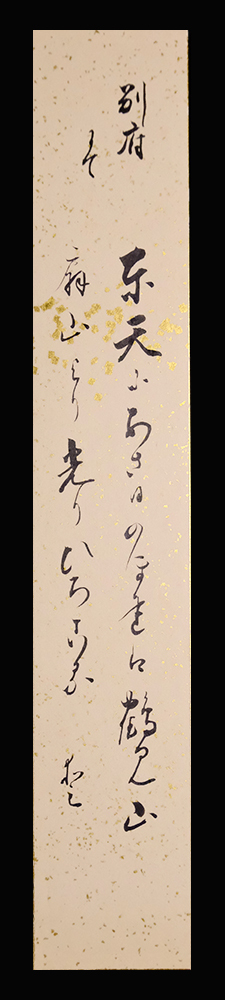 別府
にて
東天にあさ日のほれは鶴見山
扇山より光りひろこる